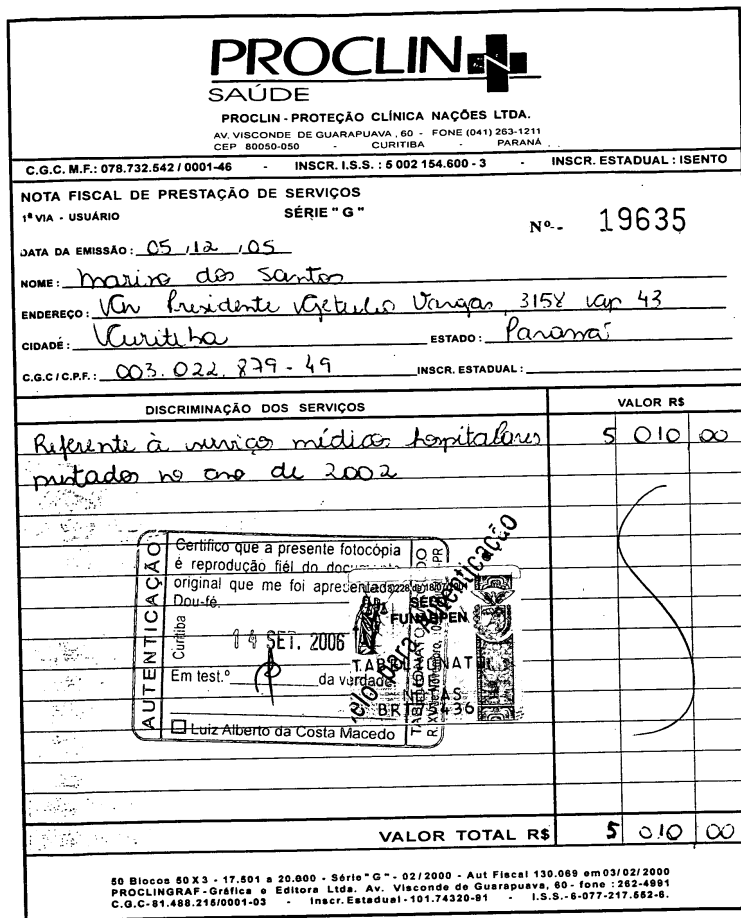 PROCLIN
SAÚDE
PROCLIN - PROTEÇÃO CLÍNICA NAÇÕES LTDA.
AV. VISCONDE DE GUARAPUAVA , 60 - FONE (041) 263-1211
CEP 80050-050 - CURITIBA - PARANÁ
C.G.C. M.F.: 078.732.542 / 0001-46 - INSCR. I.S.S. : 5 002 154.600 - 3 - INSCR. ESTADUAL : ISENTO
NOTA FISCAL DE PRESTAÇÃO DE SERVIÇOS
1ª VIA - USUÁRIO SÉRIE " G " Nº - 19635
DATA DA EMISSÃO : 05 , 12 , 05
NOME : Mariso dos Santos
ENDEREÇO : Presidente Getulio Vargas, 3158 ap 43
CIDADE : Curitiba ESTADO : Paraná
C.G.C / C.P.F. : 003.022.879-49 INSCR. ESTADUAL :
DISCRIMINAÇÃO DOS SERVIÇOS VALOR R$
Referente à serviços médicos hospitalares 5 010 00
prestados no ano de 2002
AUTENTICAÇÃO
Certifico que a presente fotocópia
é reprodução fiel do documento
original que me foi apresentado
Dou-fé.
Curitiba
14 SET. 2006
Em test.º da verdade
Luiz Alberto da Costa Macedo
SELO
FUNARPEN
Selo para Autenticação
TABELIONATO
R. XV de Novembro,
PR
VALOR TOTAL R$ 5 010 00
50 Blocos 50 X 3 - 17.501 a 20.000 - Série " G " - 02 / 2000 - Aut Fiscal 130.069 em 03 / 02 / 2000
PROCLINGRAF - Gráfica e Editora Ltda. Av. Visconde de Guarapuava, 60 - fone : 262-4991
C.G.C-81.488.215/0001-03 - Inscr. Estadual - 101.74320-91 - I.S.S. - 6-077-217.552-6.